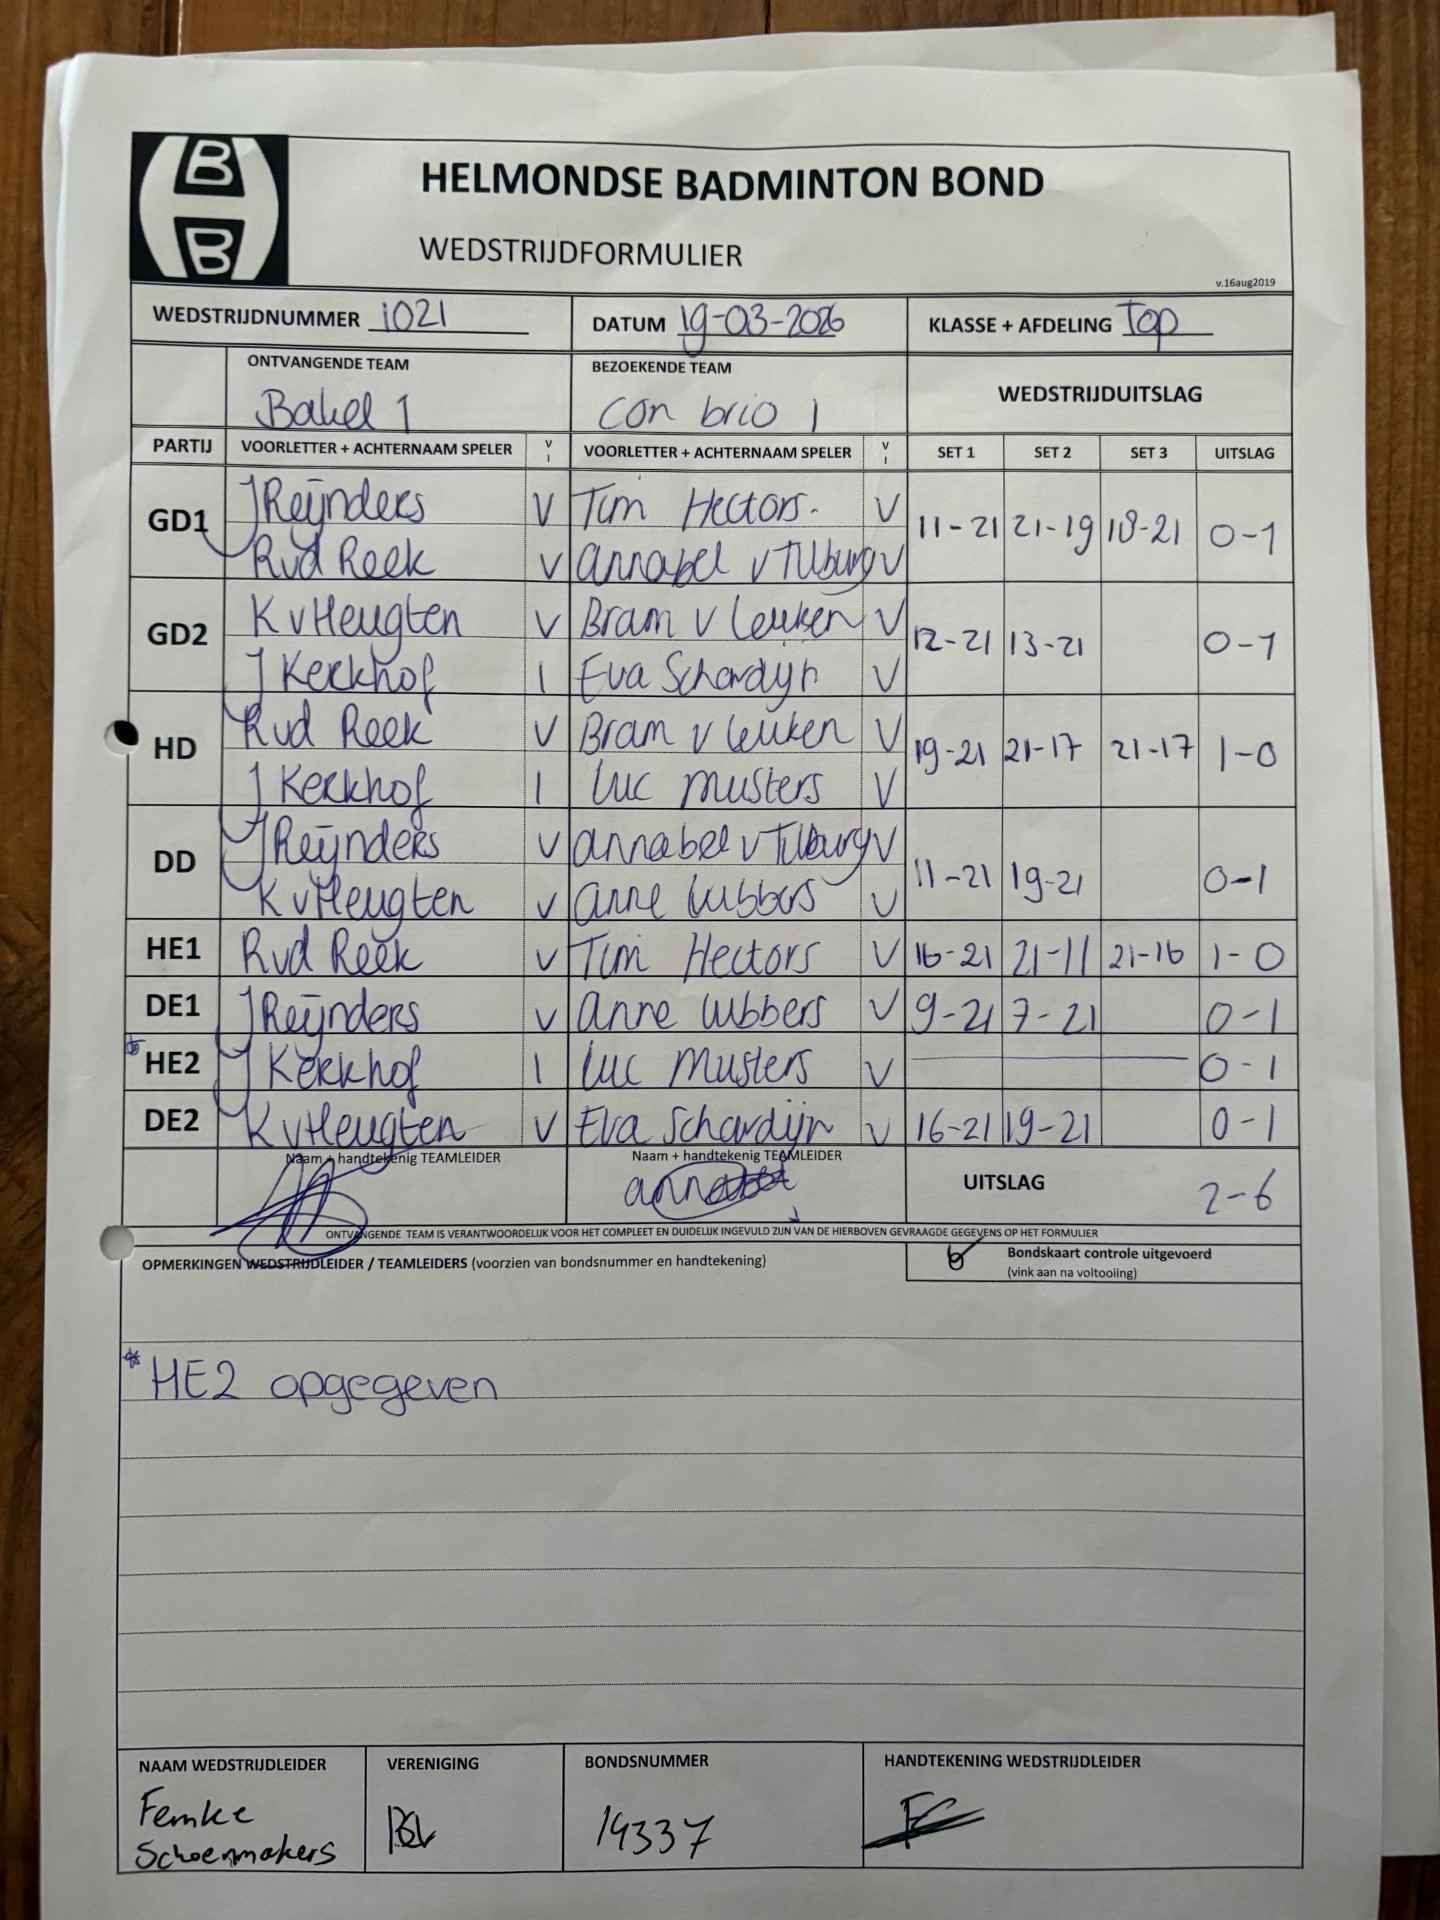 B
B
HELMONDSE BADMINTON BOND
WEDSTRIJDFORMULIER
v.16aug2019
WEDSTRIJDNUMMER 1021 DATUM 19-03-2026 KLASSE + AFDELING Top
ONTVANGENDE TEAM BEZOEKENDE TEAM WEDSTRIJDUITSLAG
Bakel 1 con brio 1
PARTIJ VOORLETTER + ACHTERNAAM SPELER V I VOORLETTER + ACHTERNAAM SPELER V I SET 1 SET 2 SET 3 UITSLAG
GD1 J Reijnders V Tim Hectors. V 11-21 21-19 18-21 0-1
Rvd Reek V Annabel v Tilburg V
GD2 K vHeugten V Bram v Leuken V 12-21 13-21 0-1
J Kerkhof I Eva Schardijn V
HD Rvd Reek V Bram v Leuken V 19-21 21-17 21-17 1-0
J Kerkhof I Luc Musters V
DD J Reijnders V Annabel v Tilburg V 11-21 19-21 0-1
K vHeugten V Anne Lubbers V
HE1 Rvd Reek V Tim Hectors V 16-21 21-11 21-16 1-0
DE1 J Reijnders V Anne Lubbers V 9-21 7-21 0-1
* HE2 J Kerkhof I Luc Musters V 0-1
DE2 K vHeugten V Eva Schardijn V 16-21 19-21 0-1
Naam + handtekenig TEAMLEIDER Naam + handtekenig TEAMLEIDER UITSLAG 2-6
ONTVANGENDE TEAM IS VERANTWOORDELIJK VOOR HET COMPLEET EN DUIDELIJK INGEVULD ZIJN VAN DE HIERBOVEN GEVRAAGDE GEGEVENS OP HET FORMULIER
OPMERKINGEN WEDSTRIJDLEIDER / TEAMLEIDERS (voorzien van bondsnummer en handtekening) Bondskaart controle uitgevoerd
(vink aan na voltooiing)
* HE2 opgegeven
NAAM WEDSTRIJDLEIDER VERENIGING BONDSNUMMER HANDTEKENING WEDSTRIJDLEIDER
Femke 14337
Schoenmakers